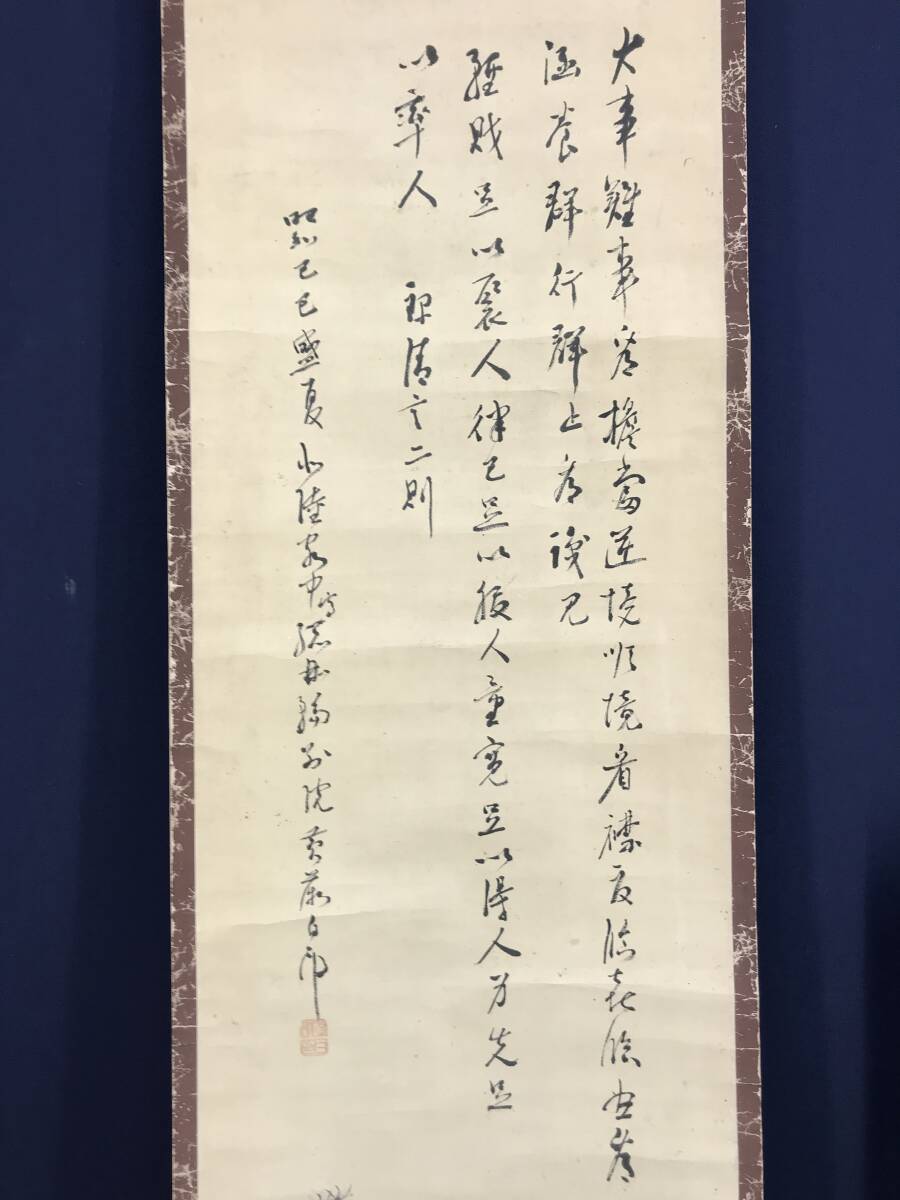 大事難事看擔當逆境順境看襟度臨喜臨怒看
涵養群行群止看識見
輕財足以聚人律己足以服人量寬足以得人身先足
以率人　録清言二則
昭和己巳盛夏北陸客中時於井波別院